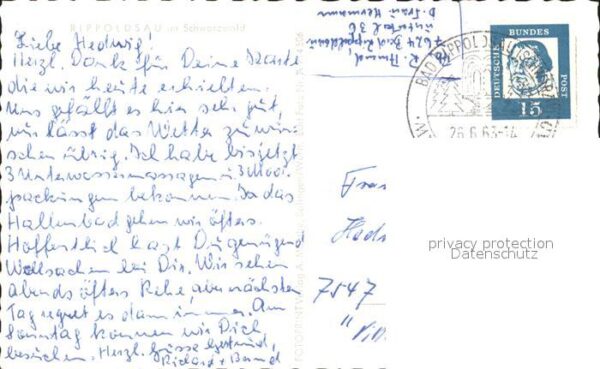 RIPPOLDSAU im Schwarzwald
Liebe Hedwig!
Herzl. Dank für Deine Karte
die wir heute erhielten.
Uns gefällt es hier sehr gut,
nur lässt das Wetter zu wün-
schen übrig. Ich habe bis jetzt
3 Unterwassermassagen u 3 Moor
packungen bekommen. In das
Hallenbad gehen wir öfters.
Hoffentlich hast Du genügend
Wollsachen bei Dir. Wir sehen
abends öfters Rehe, aber nächsten
Tag regnet es dann immer. Am
Sonntag können wir Dich
besuchen. Herzl. Grüsse Gertrud,
Richard + Bernd
7624 Bad Rippoldsau
BAD RIPPOLDSAU
26.6.63-14
DEUTSCHE
BUNDES
POST
15
Frau
7547
privacy protection
Datenschutz